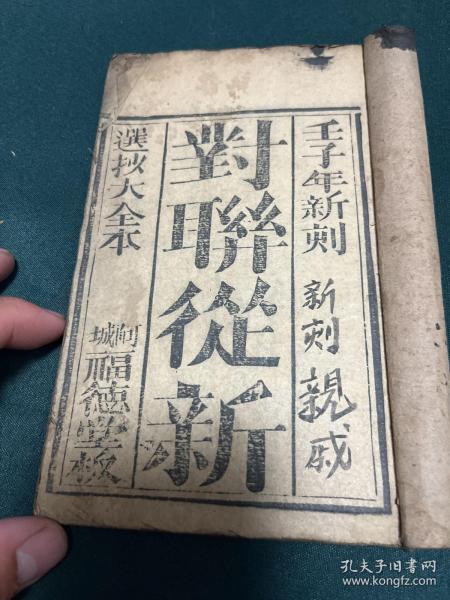 壬子年新刻 新刻親戚
對聯從新
選抄大全本
城福德堂板
孔夫子旧书网
www.kongfz.com